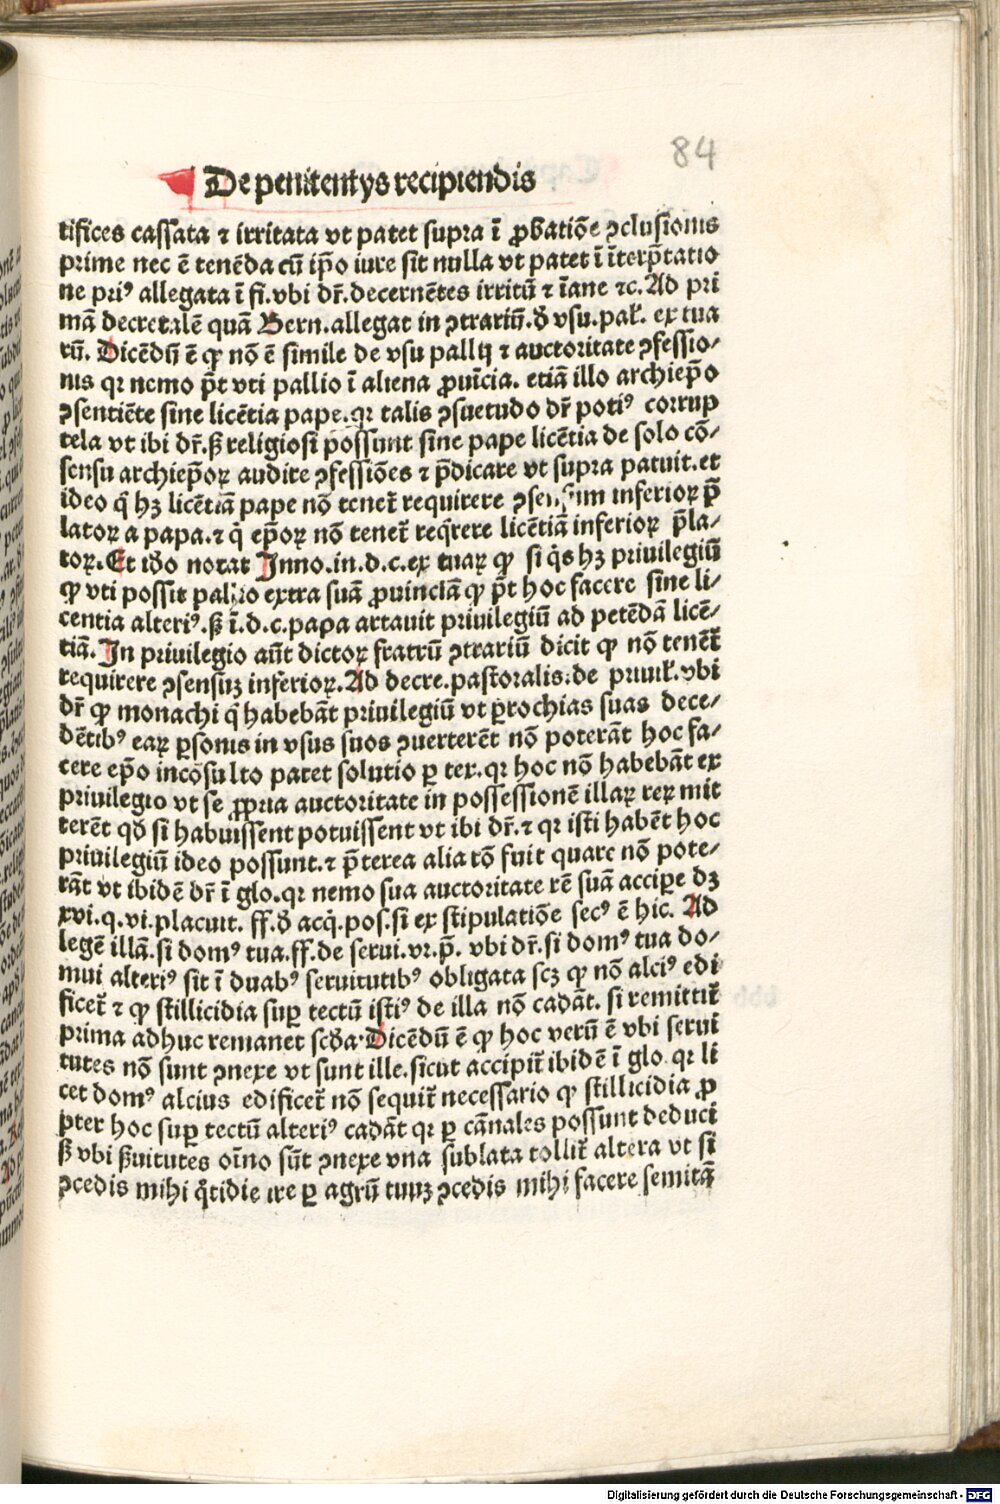 84
De penitentys recipiendis
tifices cassata ⁊ irritata vt patet supra ī ꝓbatiōe ꝯclusionis
prime nec ē tenēda cū ip̄o iure sit nulla vt patet ī īterp̄tatio
ne priꝰ allegata ī fi. vbi dr̄. decernētes irritū ⁊ īane ⁊c. Ad pri
mā decretalē quā Bern. allegat in ꝯtrariū. ꝺ̄ vsu. pal̄. ex tua
rū. Dicēdū ē ꝙ nō ē simile de vsu pallij ⁊ auctoritate ꝯfessio-
nis qr nemo p̄t vti pallio ī aliena ꝓuīcia. etiā illo archiep̄o
ꝯsentiēte sine licētia pape. qr talis ꝯsuetudo dr̄ potiꝰ corrup
tela vt ibi dr̄. ß religiosi possunt sine pape licētia de solo cō-
sensu archiep̄oꝝ audire ꝯfessiōes ⁊ p̄dicare vt supra patuit. et
ideo q̄ hꝫ licētiā pape nō tenet̄ requirere ꝯsensum inferioꝝ p̄
latoꝝ a papa. ⁊ q̄ ep̄oꝝ nō tenet̄ req̄rere licētiā inferioꝝ p̄la-
toꝝ. Et iꝺo notat Inno. in. d. c. ex tuaꝝ ꝙ si q̄s hꝫ priuilegiū
ꝙ vti possit pallio extra suā ꝓuinciā ꝙ p̄t hoc facere sine li-
centia alteriꝰ. ß ī. d. c. papa artauit priuilegiū ad petēdā licē-
tiā. In priuilegio aūt dictoꝝ fratrū ꝯtrariū dicit ꝙ nō tenēt̄
requirere ꝯsensuꝫ inferioꝝ. Ad decre. pastoralis. de priuil̄. vbi
dr̄ ꝙ monachi q̄ habebāt priuilegiū vt ꝑrochias suas dece-
dētibꝰ eaꝝ ꝑsonis in vsus suos ꝯuerterēt nō poterāt hoc fa-
cere ep̄o incōsulto patet solutio ꝑ tex. qr hoc nō habebāt ex
priuilegio vt se ꝓpria auctoritate in possessionē illaꝝ reꝝ mit
terēt qꝺ si habuissent potuissent vt ibi dr̄. ⁊ qr isti habēt hoc
priuilegiū ideo possunt. ⁊ p̄terea alia rō fuit quare nō pote-
rāt vt ibidē dr̄ ī glo. qr nemo sua auctoritate rē suā acciꝑe dꝫ
xvi. q. vi. placuit. ff. ꝺ̄ acq̄. pos. si ex stipulatiōe secꝰ ē hic. Ad
legē illā. si domꝰ tua. ff. de serui. vr. p̄. vbi dr̄. si domꝰ tua do-
mui alteriꝰ sit ī duabꝰ seruitutibꝰ obligata scꝫ ꝙ nō alciꝰ edi
ficet̄ ⁊ ꝙ stillicidia suꝑ tectū istiꝰ de illa nō cadāt. si remittit̄
prima adhuc remanet scꝺa. Dicēdū ē ꝙ hoc verū ē vbi serui
tutes nō sunt ꝯnexe vt sunt ille. sicut accipit̄ ibidē ī glo. qr li
cet domꝰ alcius edificet̄ nō sequit̄ necessario ꝙ stillicidia ꝓ
pter hoc suꝑ tectū alteriꝰ cadāt qr ꝑ cānales possunt deduci
ß vbi ßuitutes oīno sūt ꝯnexe vna sublata tollit̄ altera vt si
ꝯcedis mihi q̄tidie ire ꝑ agrū tuuꝫ ꝯcedis mihi facere semitā
Digitalisierung gefördert durch die Deutsche Forschungsgemeinschaft - DFG